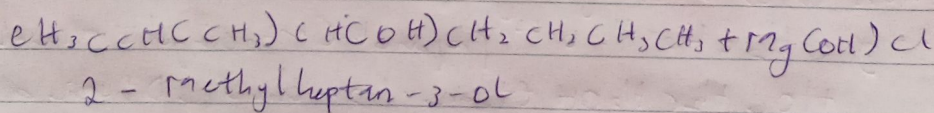 CH₃CCHCCH₃)CHCOH)CH₂CH₂CH₂CH₃ + Mg(OH)Cl
2 - methylheptan-3-OL